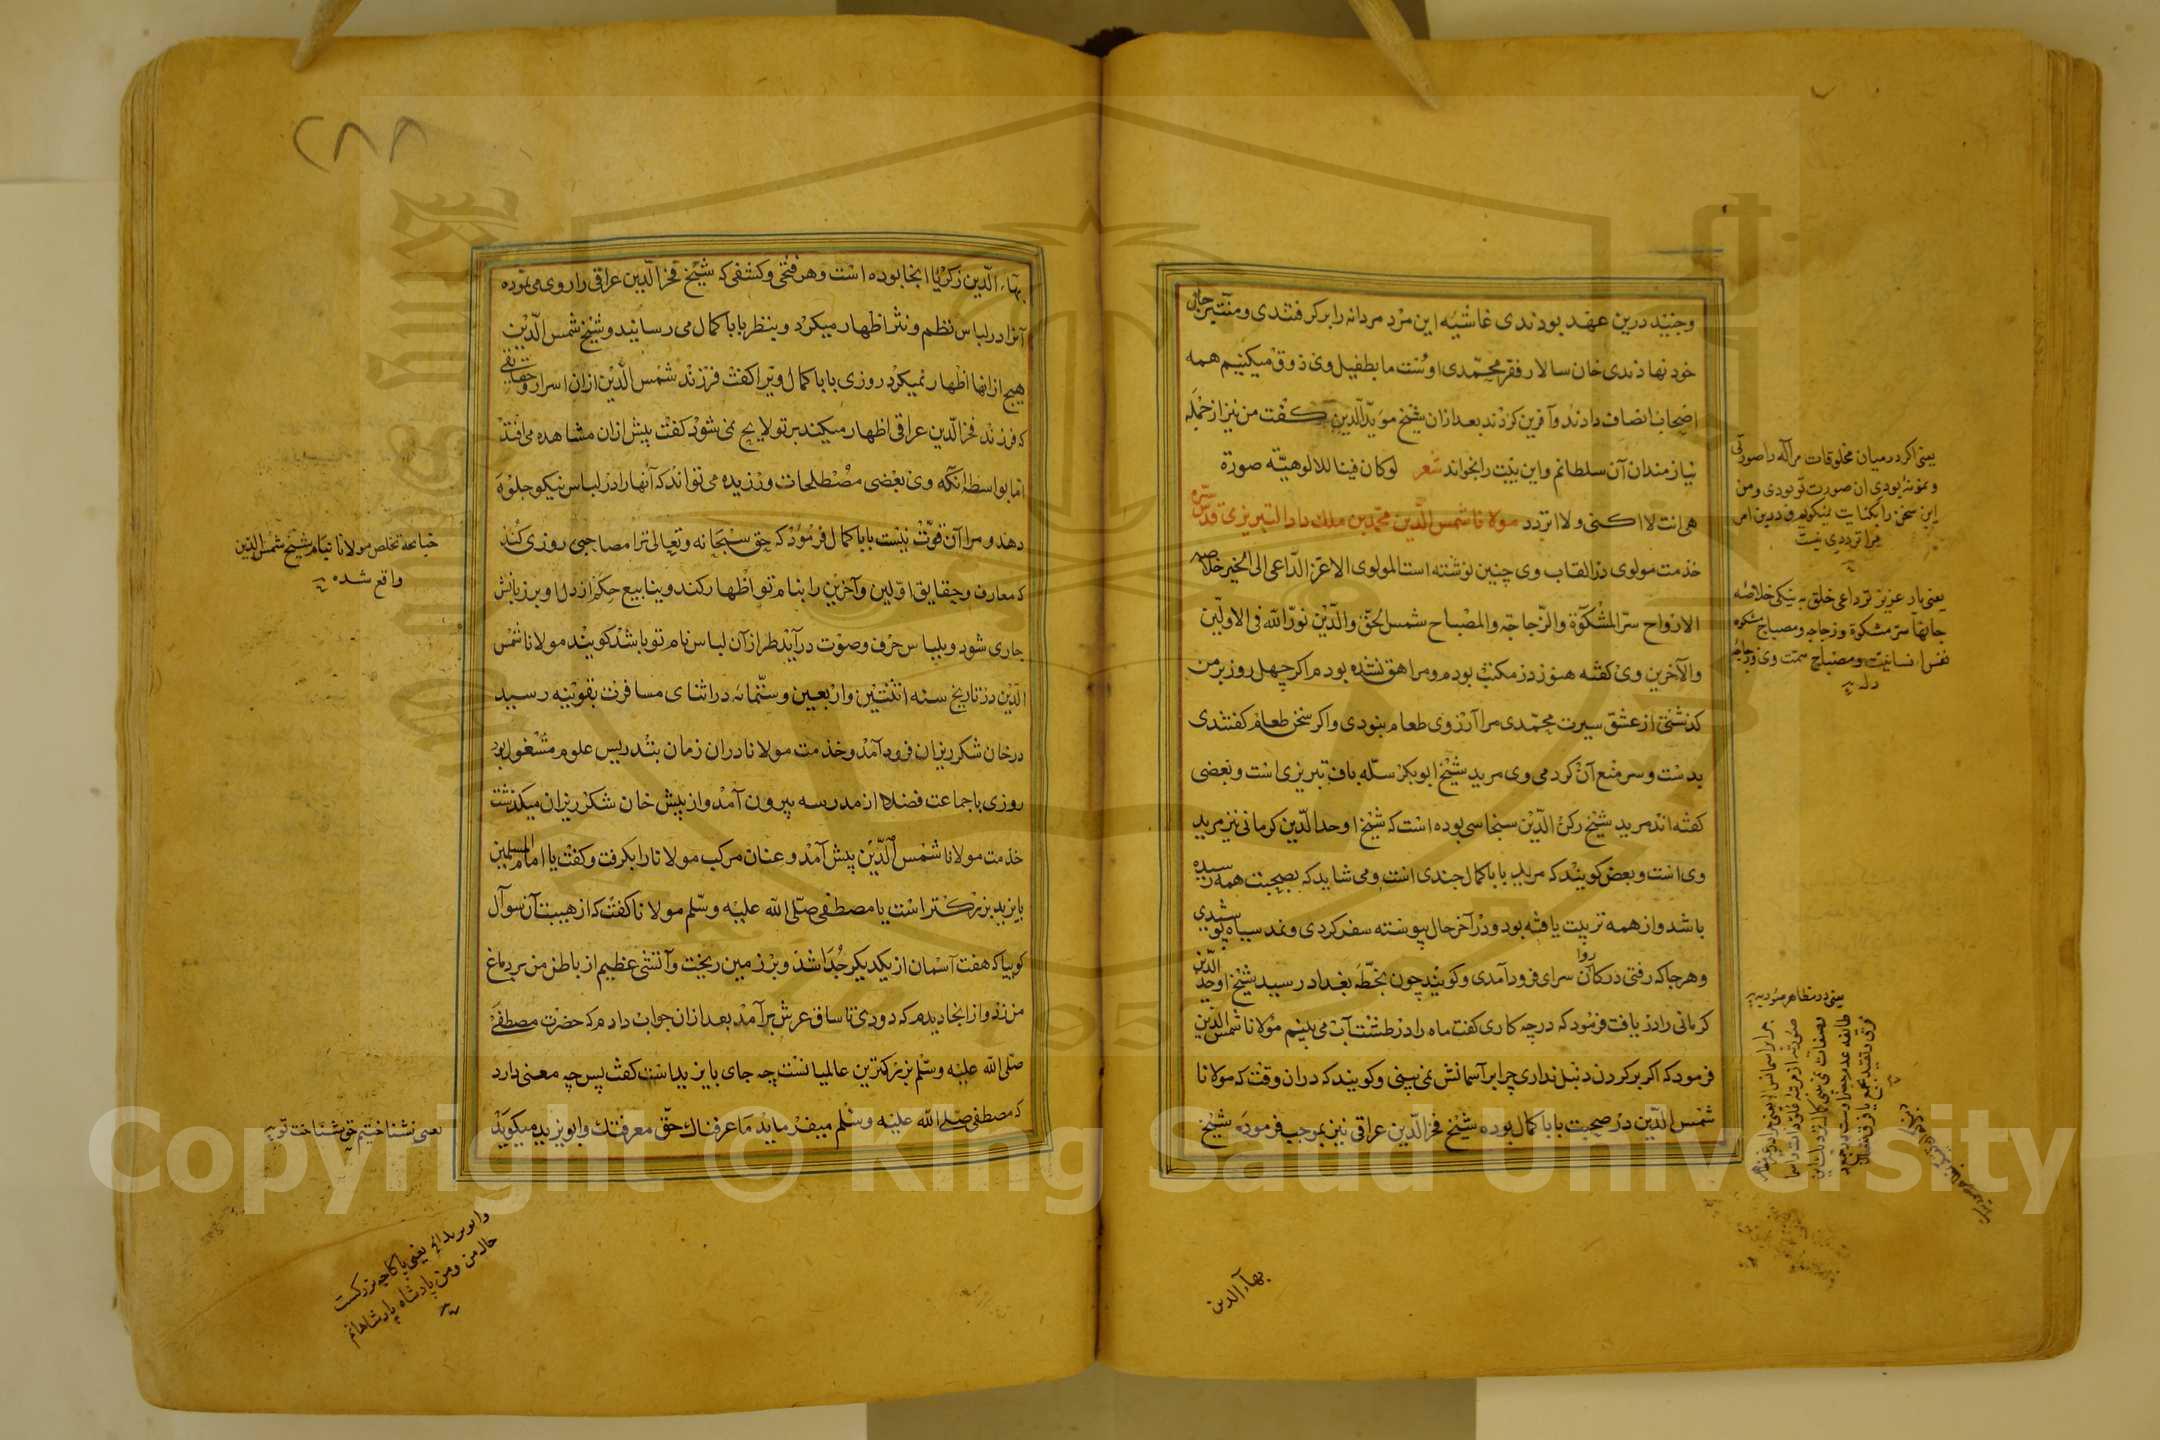 وجنید درین عهد بودندی غاشیه این مرد مردانه را برگرفتندی و منت بر جان
خود نهادندی خان سالار فقر محمّدی اوست ما بطفیل وی ذوق میکنیم همه
اصحاب انصاف دادند و آفرین کردند بعد ازان شیخ مویّد الدّین کفت من نیز از جمله
نیازمندان آن سلطانم و این بیت را بخواند شعر لو کان فینا للالوهیّه صورة
هی انت لا اکنی ولا اتردد مولانا شمس الدّین محمّد بن ملک داد التبریزی قدس سره
خدمت مولوی در القاب وی چنین نوشته است المولوی الاعز الدّاعی الی الخیر خلاصه
الارواح سرّ المشکوة والزّجاجة والمصباح شمس الحقّ والدّین نورّ الله فی الاولین
والآخرین وی کفته هنوز در مکتب بودم و مراهق نشده بودم اکر چهل روز بر من
کذشتی از عشق سیرت محمّدی مرا آرزوی طعام نبودی و اکر سخن طعام کفتندی
بدست و سر منع آن کردمی وی مرید شیخ ابو بکر سلّه باف تبریزی است و بعضی
کفته اند مرید شیخ رکن الدّین سنجاسی بوده است که شیخ اوحد الدّین کرمانی نیز مرید
وی است و بعض کویند که مرید بابا کمال جندی است و می شاید که بصحبت همه رسیده
باشد و از همه تربیت یافته بود و در آخر حال پیوسته سفر کردی و نمد سیاه پوشیدی
و هر جا که رفتی در کاروان سرای فرود آمدی و کویند چون بخطّه بغداد رسید شیخ اوحد الدّین
کرمانی را دریافت فرمود که در چه کاری کفت ماه را در طشت آب می بینم مولانا شمس الدّین
فرمود که اکر بر کردن دنبل نداری چرا بر آسمانش نمی بینی و کویند که دران وقت که مولانا
شمس الدّین در صحبت بابا کمال بوده شیخ فخر الدّین عراقی نیز بموجب فرموده شیخ
بهآء الدین
یعنی اکر در میان مخلوقات مر آله را صورتی
و نمونه بودی ان صورت تو بودی و من
این سخن را بکنایت نمیکویم و درین امر
مرا ترددی نیست
یعنی یار عزیز تر داعی خلق به نیکی خلاصه
جانها سرّ مشکوة و زجاجه و مصباح مشکوه
۲۸۸
بهآء الدّین زکریّا آنجا بوده است و هر فتحی و کشفی که شیخ فخر الدّین عراقی را روی می نموده
آنرا در لباس نظم و نثر اظهار میکرد و بنظر بابا کمال می رسانید و شیخ شمس الدّین
هیچ از انها اظهار نمیکرد روزی بابا کمال ویرا کفت فرزند شمس الدّین از ان اسرار و حقایقی
که فرزند فخر الدّین عراقی اظهار میکند بر تو لایح نمی شود کفت بیش ازان مشاهده می افتد
اما بواسطه انکه وی بعضی مصطلحات ورزیده می تواند که آنها را در لباس نیکو جلوه
دهد و مرا آن قوّت نیست بابا کمال فرمود که حق سبحانه و تعالی ترا مصاحبی روزی کند
که معارف و حقایق اوّلین و آخرین را بنام تو اظهار کند و ینابیع حکم از دل او بر زبانش
جاری شود و بلباس حرف و صوت در آید طراز آن لباس نام تو باشد کویند مولانا شمس
الدّین در تاریخ سنه اثنتین واربعین وستّمائه در اثنای مسافرت بقونیه رسید
در خان شکر ریزان فرود آمد و خدمت مولانا دران زمان بتدریس علوم مشغول بود
روزی با جماعت فضلا از مدرسه بیرون آمد و از پیش خان شکر ریزان میکذشت
خدمت مولانا شمس الدّین پیش آمد و عنان مرکب مولانا را بکرفت و کفت یا امام المسلمین
بایزید بزرکتر است یا مصطفی صلّی الله علیه وسلّم مولانا کفت که از هیبت آن سوآل
کوییا که هفت آسمان از یکدیکر جُدا شد و بر زمین ریخت و آتشی عظیم از باطن من بر دماغ
من زد و از انجا دیدم که دودی تا ساق عرش بر آمد بعد ازان جواب دادم که حضرت مصطفی
صلّی الله علیه وسلّم بزرکترین عالمیانست چه جای بایزید است کفت پس چه معنی دارد
که مصطفی صلی الله علیه وسلّم میفرماید ما عرفناک حقّ معرفتک و ابو یزید میکوید
چنانچه تخلص مولانا بنام شیخ شمس الدین
واقع شده
یعنی نشناختیم حق شناخت تو
حال من و من پادشاه پادشاهانم
Copyright © King Saud University